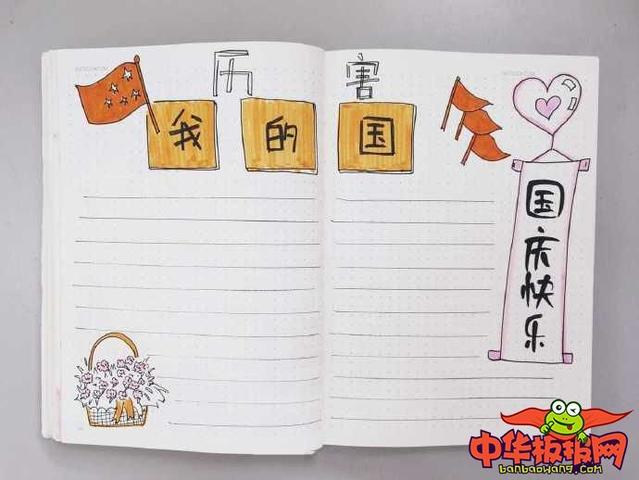 历害
我的国
国庆快乐
中华板报网
banbaowang.com